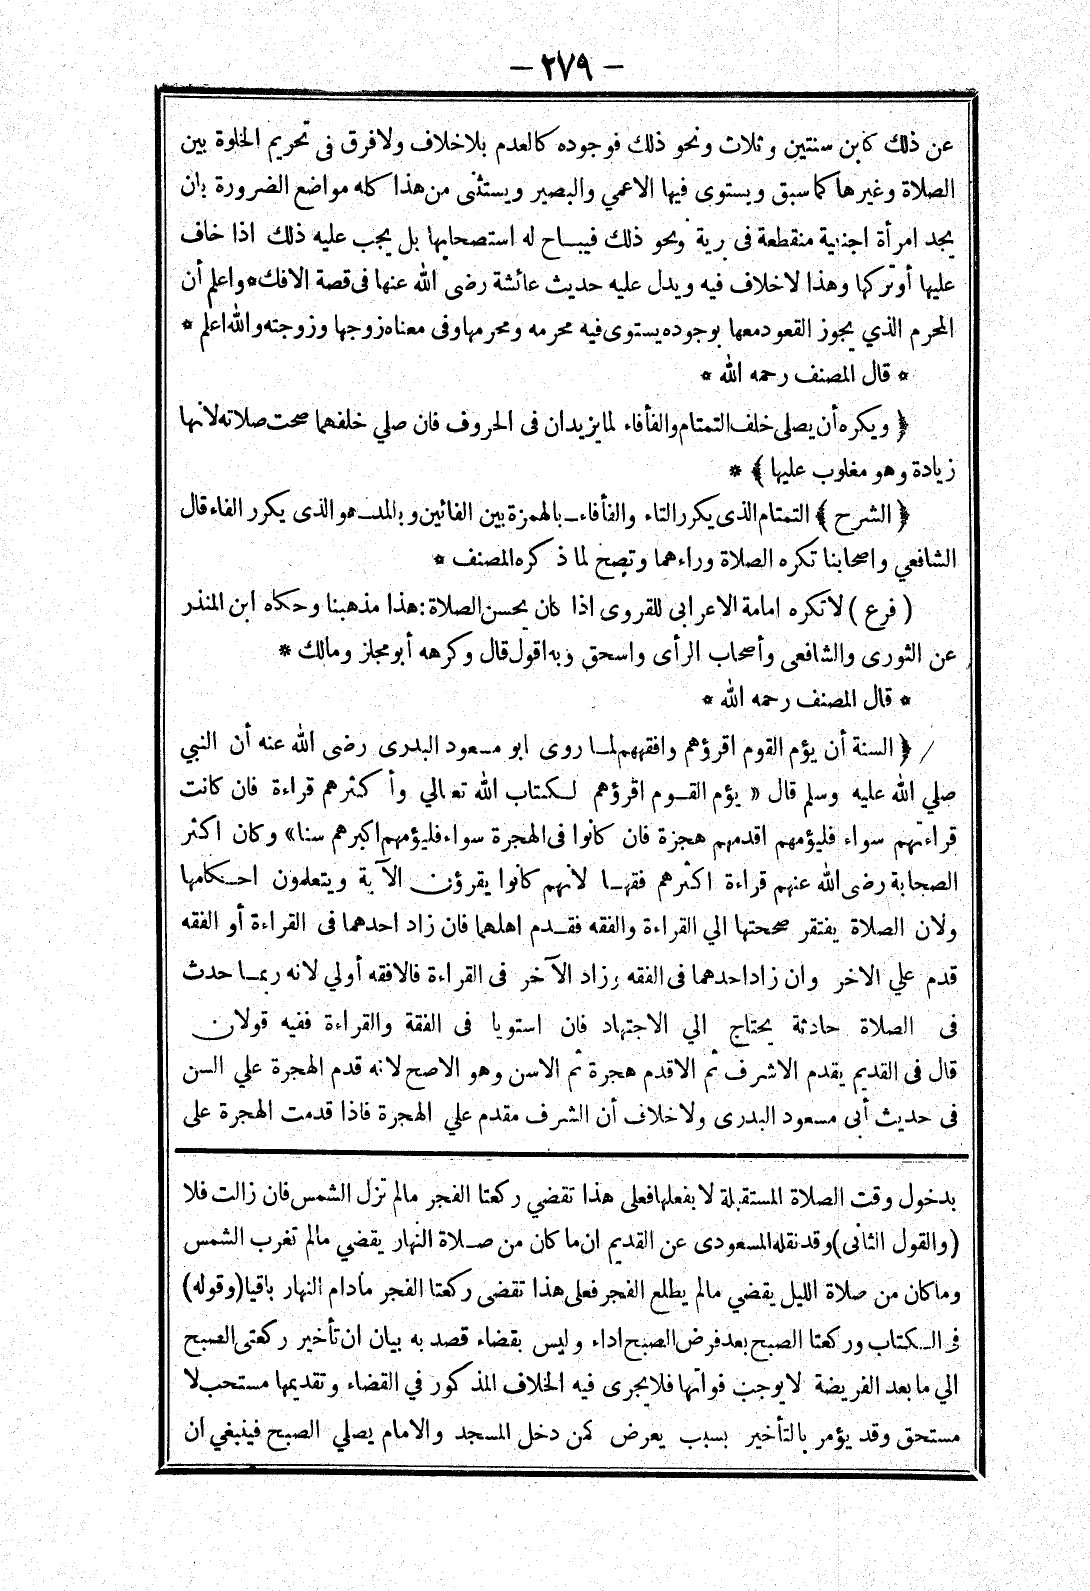 — ٢٧٩ —
عن ذلك كابن سنتين وثلاث ونحو ذلك فوجوده كالعدم بلاخلاف ولافرق فى تحريم الخلوة بين
الصلاة وغيرها كما سبق ويستوى فيها الاعمي والبصير ويستثنى من هذا كله مواضع الضرورة بان
يجد امرأة اجنبية منقطعة فى برية ونحو ذلك فيبـاح له استصحابها بل يجب عليه ذلك اذا خاف
عليها أوتركها وهذا لاخلاف فيه ويدل عليه حديث عائشة رضى الله عنها فى قصة الافك* واعلم أن
المحرم الذي يجوز القعود معها بوجوده يستوى فيه محرمه ومحرمها وفى معناه زوجها وزوجته والله اعلم *
* قال المصنف رحمه الله *
﴿ ويكره أن يصلى خلف التمتام والفأفاء لما يزيدان فى الحروف فان صلي خلفهما صحت صلاته لانها
زيادة وهو مغلوب عليها ﴾ *
﴿ الشرح ﴾ التمتام الذى يكرر التاء والفأفاء ـ بالهمزة بين الفائين وبالمد ـ هو الذى يكرر الفاء قال
الشافعي واصحابنا تكره الصلاة وراءهما وتصح لما ذكره المصنف *
( فرع ) لا تكره امامة الاعرابى للقروى اذا كان يحسن الصلاة : هذا مذهبنا وحكاه ابن المنذر
عن الثورى والشافعى وأصحاب الرأى واسحق وبه اقول قال وكرهه أبو مجلز ومالك *
* قال المصنف رحمه الله *
﴿ السنة أن يؤم القوم اقرؤهم وافقههم لمـا روى ابو مسعود البدرى رضى الله عنه أن النبي
صلي الله عليه وسلم قال « يؤم القـوم اقرؤهم لـكتاب الله تعالي وأكثرهم قراءة فان كانت
قراءتهم سواء فليؤمهم اقدمهم هجرة فان كانوا فى الهجرة سواء فليؤمهم اكبرهم سنا» وكان اكثر
الصحابة رضى الله عنهم قراءة اكثرهم فقهـا لانهم كانوا يقرؤن الآية ويتعلمون احـكامها
ولان الصلاة يفتقر صحتها الي القراءة والفقه فقـدم اهلهما فان زاد احدهما فى القراءة أو الفقه
قدم علي الاخر وان زاد احدهما فى الفقه وزاد الآخر فى القراءة فالافقه أولي لانه ربمـا حدث
فى الصلاة حادثة يحتاج الي الاجتهاد فان استويا فى الفقة والقراءة ففيه قولان
قال فى القديم يقدم الاشرف ثم الاقدم هجرة ثم الاسن وهو الاصح لانه قدم الهجرة علي السن
فى حديث أبى مسعود البدرى ولاخلاف أن الشرف مقدم علي الهجرة فاذا قدمت الهجرة على
بدخول وقت الصلاة المستقبلة لا بفعلها فعلى هذا تقضي ركعتا الفجر مالم تزل الشمس فان زالت فلا
(والقول الثانى) وقد نقله المسعودى عن القديم ان ما كان من صـلاة النهار يقضي مالم تغرب الشمس
وما كان من صلاة الليل يقضي مالم يطلع الفجر فعلى هذا تقضى ركعتا الفجر مادام النهار باقيا (وقوله)
فى الـكتاب وركعتا الصبح بعد فرض الصبح اداء وليس بقضاء قصد به بيان ان تأخير ركعتى الصبح
الي ما بعد الفريضة لا يوجب فواتها فلا يجرى فيه الخلاف المذكور في القضاء وتقديمها مستحب لا
مستحق وقد يؤمر بالتأخير بسبب يعرض كمن دخل المسجد والامام يصلي الصبح فينبغي ان